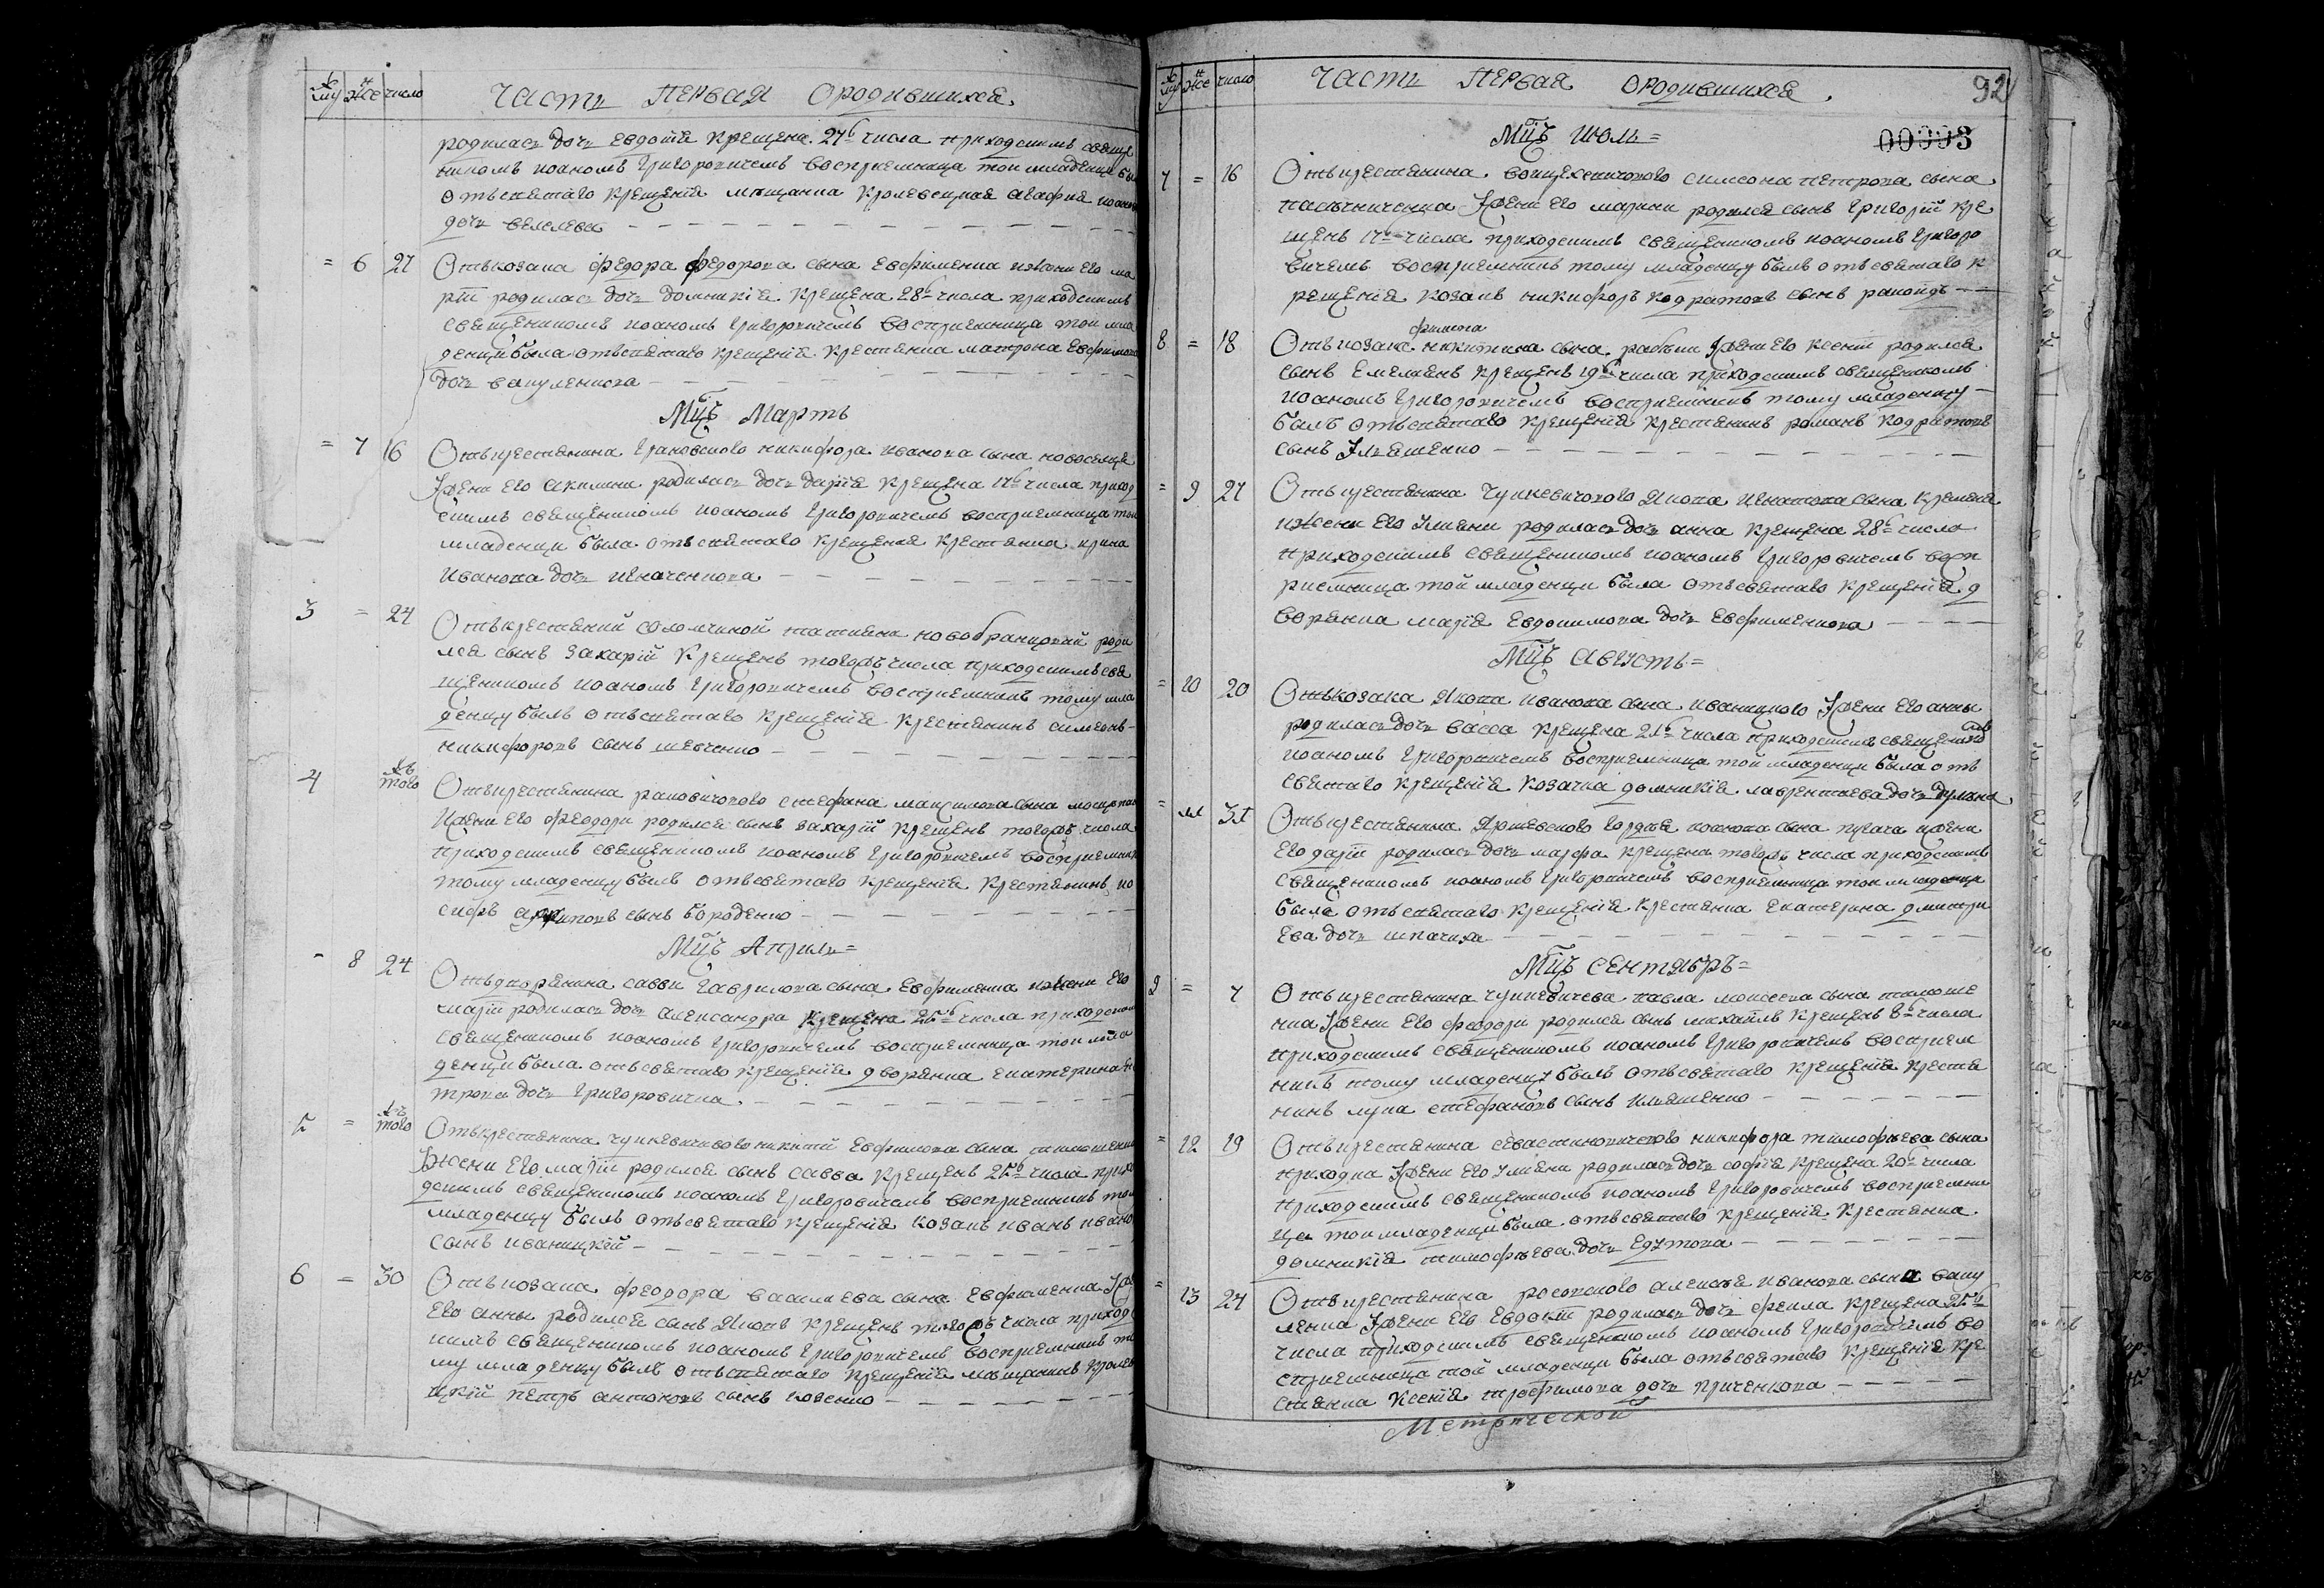 му же число Часть ПЕРВАЯ ОРОДИВШИХСЯ.
родилась дочь Евдокіа крещена 27 числа приходскимъ свяще
никомъ иоаномъ григоровичемъ восприемница тои младенци бы
отъ святаго крещеніа мѣщанка кролевецкаа агафиа иоанова
дочь
= 6 27 Отъ козака федора федорова сына Евфименка и жени его ма
ріи родилась дочь домникіа крещена 28 числа приходскимъ
священикомъ иоаномъ григоровичемъ восприемница тои мла
денци была отъ святаго крещеніа крестянка матрона Евфимова
дочь вакуленкова
Мцъ Мартъ
= 7 16 Отъ крестянина грановского никифора иванова сына новоселця
и жени его акилини родилась дочь даріа крещена 17 числа приход
скимъ священикомъ иоаномъ григоровичемъ восприемница тои
младенци была отъ святаго крещеніа крестянка ирина
иванова дочь игначенкова
3 = 24 Отъ крестянки татияни новобранцовой роди
лся сынъ захарій крещенъ тогожъ числа приходскимъ свя
щеникомъ иоаномъ григоровичемъ восприемникъ тому мла
денцу былъ отъ святаго крещеніа крестянинъ симеонъ
никифоровъ сынъ шевченко
4 того Отъ крестянина раковичового стефана максимова сына
и жени его феодори родился сынъ захарій крещенъ тогожъ числа
приходскимъ священикомъ иоаномъ григоровичемъ восприемникъ
тому младенцу былъ отъ святаго крещеніа крестянинъ ио
сифъ сынъ бороденко
Мцъ Априль =
- 8 24 Отъ дворянина савви гаврилова сына Евфименка и жени его
маріи родилась дочь александра крещена 25 числа приходским
священикомъ иоаномъ григоровичемъ восприемница тои мла
денци была отъ святаго крещеніа дворянка екатерина пе
трова дочь григоровичка.
5 = того Отъ крестянина чуйкевичового никити Евфимова сына тимошенка
и жени его маріи родился сынъ савва крещенъ 25 числа прихо
дскимъ священикомъ иоаномъ григоровичемъ восприемникъ тому
младенцу былъ отъ святаго крещеніа козакъ иванъ ивано
сынъ иваницкій
6 = 30 Отъ козака феодора василиева сына Евфименка и жени
его анни родился сынъ иаковъ крещенъ тогожъ числа приход
скимъ священикомъ иоаномъ григоровичемъ восприемникъ то
му младенцу былъ отъ святаго крещеніа мѣщанинъ кролеве
цкій петръ антоновъ сынъ
му же число Часть ПЕРВАЯ ОРОДИВШИХСЯ. 92
Мцъ июль = 00093
7 = 16 Отъ крестянина симеона петрова сына
пасѣчниченка и жени его марини родился сынъ григорій кре
щенъ 17 числа приходскимъ священикомъ иоаномъ григоро
вичемъ восприемникъ тому младенцу былъ отъ святаго к
рещеніа козакъ никифоръ кодратовъ сынъ
8 = 18 Отъ козака никитина сына жени его ксеніи родился
сынъ Емелианъ крещенъ 19 числа приходскимъ священикомъ
иоаномъ григоровичемъ восприемникъ тому младенцу
былъ отъ святаго крещеніа крестянинъ романъ кодратовъ
сынъ Иляшенко
= 9 27 Отъ крестянина чуйкевичового иакова игнатова сына
и жени его родилась дочь анна крещена 28 числа
приходскимъ священикомъ иоаномъ григоровичемъ восп
риемница той младенци была отъ святаго крещеніа д
ворянка маріа Евдокимова дочь Евфименкова
Мцъ Августъ =
= 10 20 Отъ козака иакова иванова сына иваницкого и жени его анни
родилась дочь васса крещена 21 числа приходскимъ священико
иоаномъ григоровичемъ восприемница той младенци была отъ
святаго крещеніа козачка домникіа лаврентиева дочь
= 11 31 Отъ крестянина гордѣа иоанова сына пугача и жени
его даріи родилась дочь марфа крещена тогожъ числа приходскимъ
священикомъ иоаномъ григоровичемъ восприемница тои младенци
была отъ святаго крещеніа крестянка екатерина дмитри
ева дочь шпачиха
Мцъ СЕнтябръ =
9 = 7 Отъ крестянина чуйкевичева павла моисеева сына тимоше
нка и жени его феодори родился сынъ михаилъ крещенъ 8 числа
приходскимъ священикомъ иоаномъ григоровичемъ восприем
никъ тому младенцу былъ отъ святаго крещеніа крестя
нинъ лука стефановъ сынъ иляшенко
= 12 19 Отъ крестянина никифора тимофѣева сына
приходка и жени его родилась дочь софіа крещена 20 числа
приходскимъ священикомъ иоаномъ григоровичемъ восприемни
ца тои младенци была отъ святаго крещеніа крестянка
домникіа тимофѣева дочь
= 13 24 Отъ крестянина алексѣа иванова сына ваку
ленка и жени его Евдокіи родилась дочь фекла крещена 25
числа приходскимъ священикомъ иоаномъ григоровичемъ во
сприемница той младенци была отъ святаго крещеніа кре
стянка ксеніа трофимова дочь
Метрической